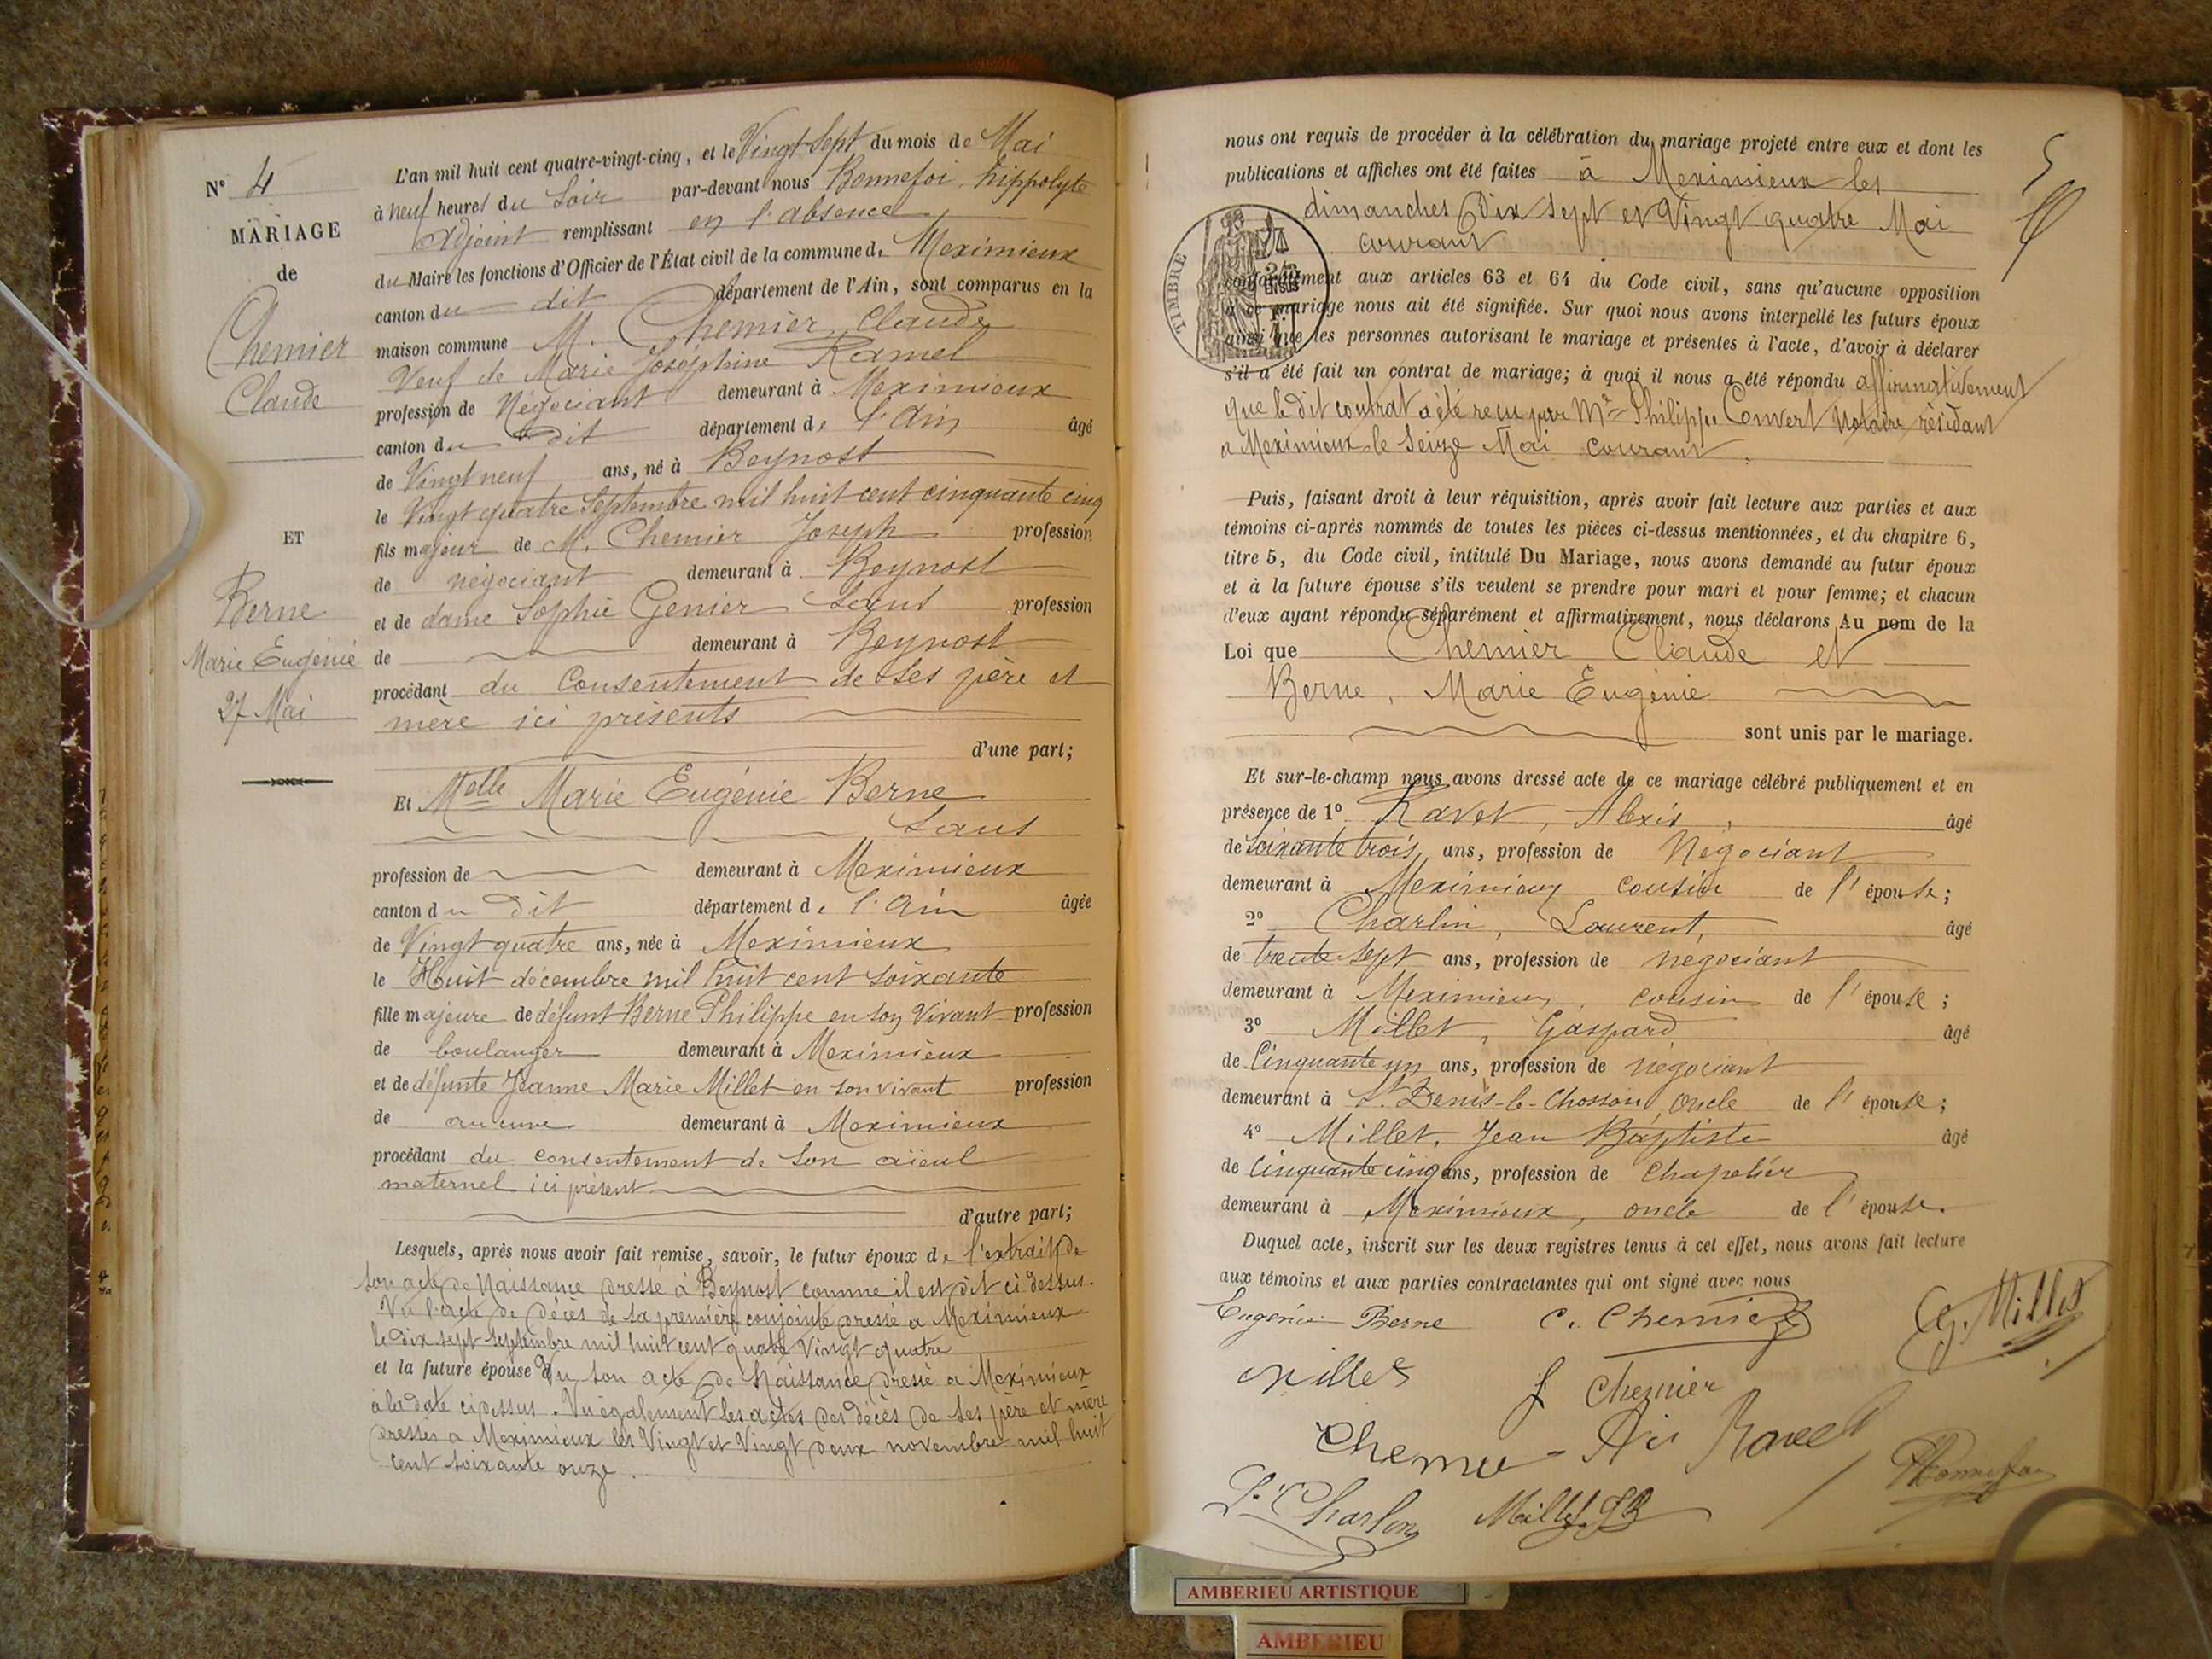 N° 4
MARIAGE
de
Chemier
Claude
ET
Berne
Marie Eugénie
27 Mai
L'an mil huit cent quatre-vingt-cinq, et le Vingt Sept du mois de Mai
à neuf heures du Soir par-devant nous Bonnefoi hippolyte
Adjoint remplissant en l'absence
du Maire les fonctions d'Officier de l'État civil de la commune de Meximieux
canton du dit département de l'Ain, sont comparus en la
maison commune M. Chemier, Claude
Veuf de Marie Joséphine Ramel
profession de Négociant demeurant à Meximieux
canton du dit département de l'Ain âgé
de Vingt neuf ans, né à Beynost
le Vingt quatre Septembre mil huit cent cinquante cinq
fils majeur de M. Chemier Joseph profession
de négociant demeurant à Beynost
et de dame Sophie Genier Sans profession
de demeurant à Beynost
procédant du Consentement de Ses père et
mère ici présents
d'une part;
Et Melle Marie Eugénie Berne
Sans
profession de demeurant à Meximieux
canton du dit département de l'Ain âgée
de Vingt quatre ans, née à Meximieux
le Huit décembre mil huit cent soixante
fille majeure de défunt Berne Philippe en son Vivant profession
de boulanger demeurant à Meximieux
et de défunte Jeanne Marie Millet en son vivant profession
de aucune demeurant à Meximieux
procédant du consentement de Son aïeul
maternel ici présent
d'autre part;
Lesquels, après nous avoir fait remise, savoir, le futur époux de l'extrait de
son acte de Naissance dressé à Beynost comme il est dit ci dessus.
Vu l'acte de décès de sa première conjointe dressé a Meximieux
le dix sept septembre mil huit cent quatre Vingt quatre
et la future épouse Vu son acte de Naissance dressé a Meximieux
à la date ci dessus. Vu également les actes des décès de ses père et mère
dressés a Meximieux les Vingt et Vingt deux novembre mil huit
cent soixante onze.
nous ont requis de procéder à la célébration du mariage projeté entre eux et dont les
publications et affiches ont été faites à Meximieux les
dimanches Dix Sept et Vingt quatre Mai
courant
TIMBRE
conformément aux articles 63 et 64 du Code civil, sans qu'aucune opposition
à ce mariage nous ait été signifiée. Sur quoi nous avons interpellé les futurs époux
ainsi que les personnes autorisant le mariage et présentes à l'acte, d'avoir à déclarer
s'il a été fait un contrat de mariage; à quoi il nous a été répondu affirmativement
que le dit contrat a été reçu par Me Philippe Convert Notaire résidant
a Meximieux le Seize Mai courant.
Puis, faisant droit à leur réquisition, après avoir fait lecture aux parties et aux
témoins ci-après nommés de toutes les pièces ci-dessus mentionnées, et du chapitre 6,
titre 5, du Code civil, intitulé Du Mariage, nous avons demandé au futur époux
et à la future épouse s'ils veulent se prendre pour mari et pour femme; et chacun
d'eux ayant répondu séparément et affirmativement, nous déclarons Au nom de la
Loi que Chemier Claude et
Berne, Marie Eugénie
sont unis par le mariage.
Et sur-le-champ nous avons dressé acte de ce mariage célébré publiquement et en
présence de 1° Ravet, Alexis, âgé
de soixante trois ans, profession de Négociant
demeurant à Meximieux cousin de l'épouse;
2° Charlin, Laurent, âgé
de trente Sept ans, profession de négociant
demeurant à Meximieux, cousin de l'épouse;
3° Millet, Gaspard âgé
de Cinquante un ans, profession de négociant
demeurant à St Denis-le-Chosson, Oncle de l'épouse;
4° Millet, Jean Baptiste âgé
de Cinquante cinq ans, profession de Chapelier
demeurant à Meximieux, oncle de l'épouse.
Duquel acte, inscrit sur les deux registres tenus à cet effet, nous avons fait lecture
aux témoins et aux parties contractantes qui ont signé avec nous
Eugénie Berne C. Chemier G. Millet
Millet J Chemier
Ravet
L. Charlin Millet JB HBonnefoi
AMBERIEU ARTISTIQUE
AMBERIEU